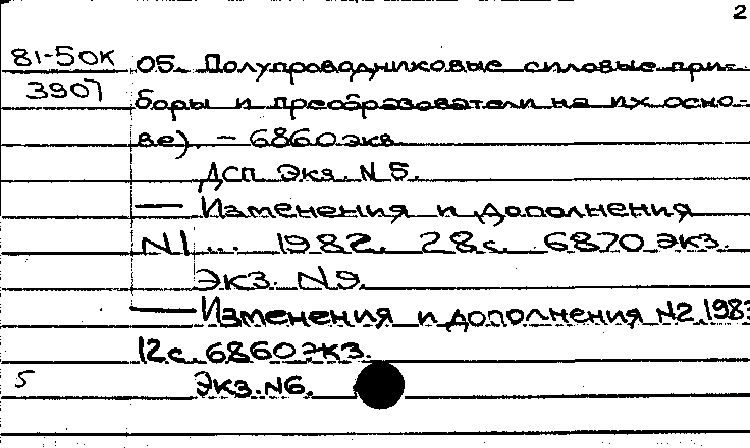 2
81-50К 05. Полупроводниковые силовые при-
3907 боры и преобразователи на их осно-
ве). - 6860 экз.
ДСП Экз. N 5.
— Изменения и дополнения
N1... 1982. 28с. 6870 экз.
Экз. N9.
— Изменения и дополнения N2. 1983
12с. 6860 экз.
5 Экз. N6.